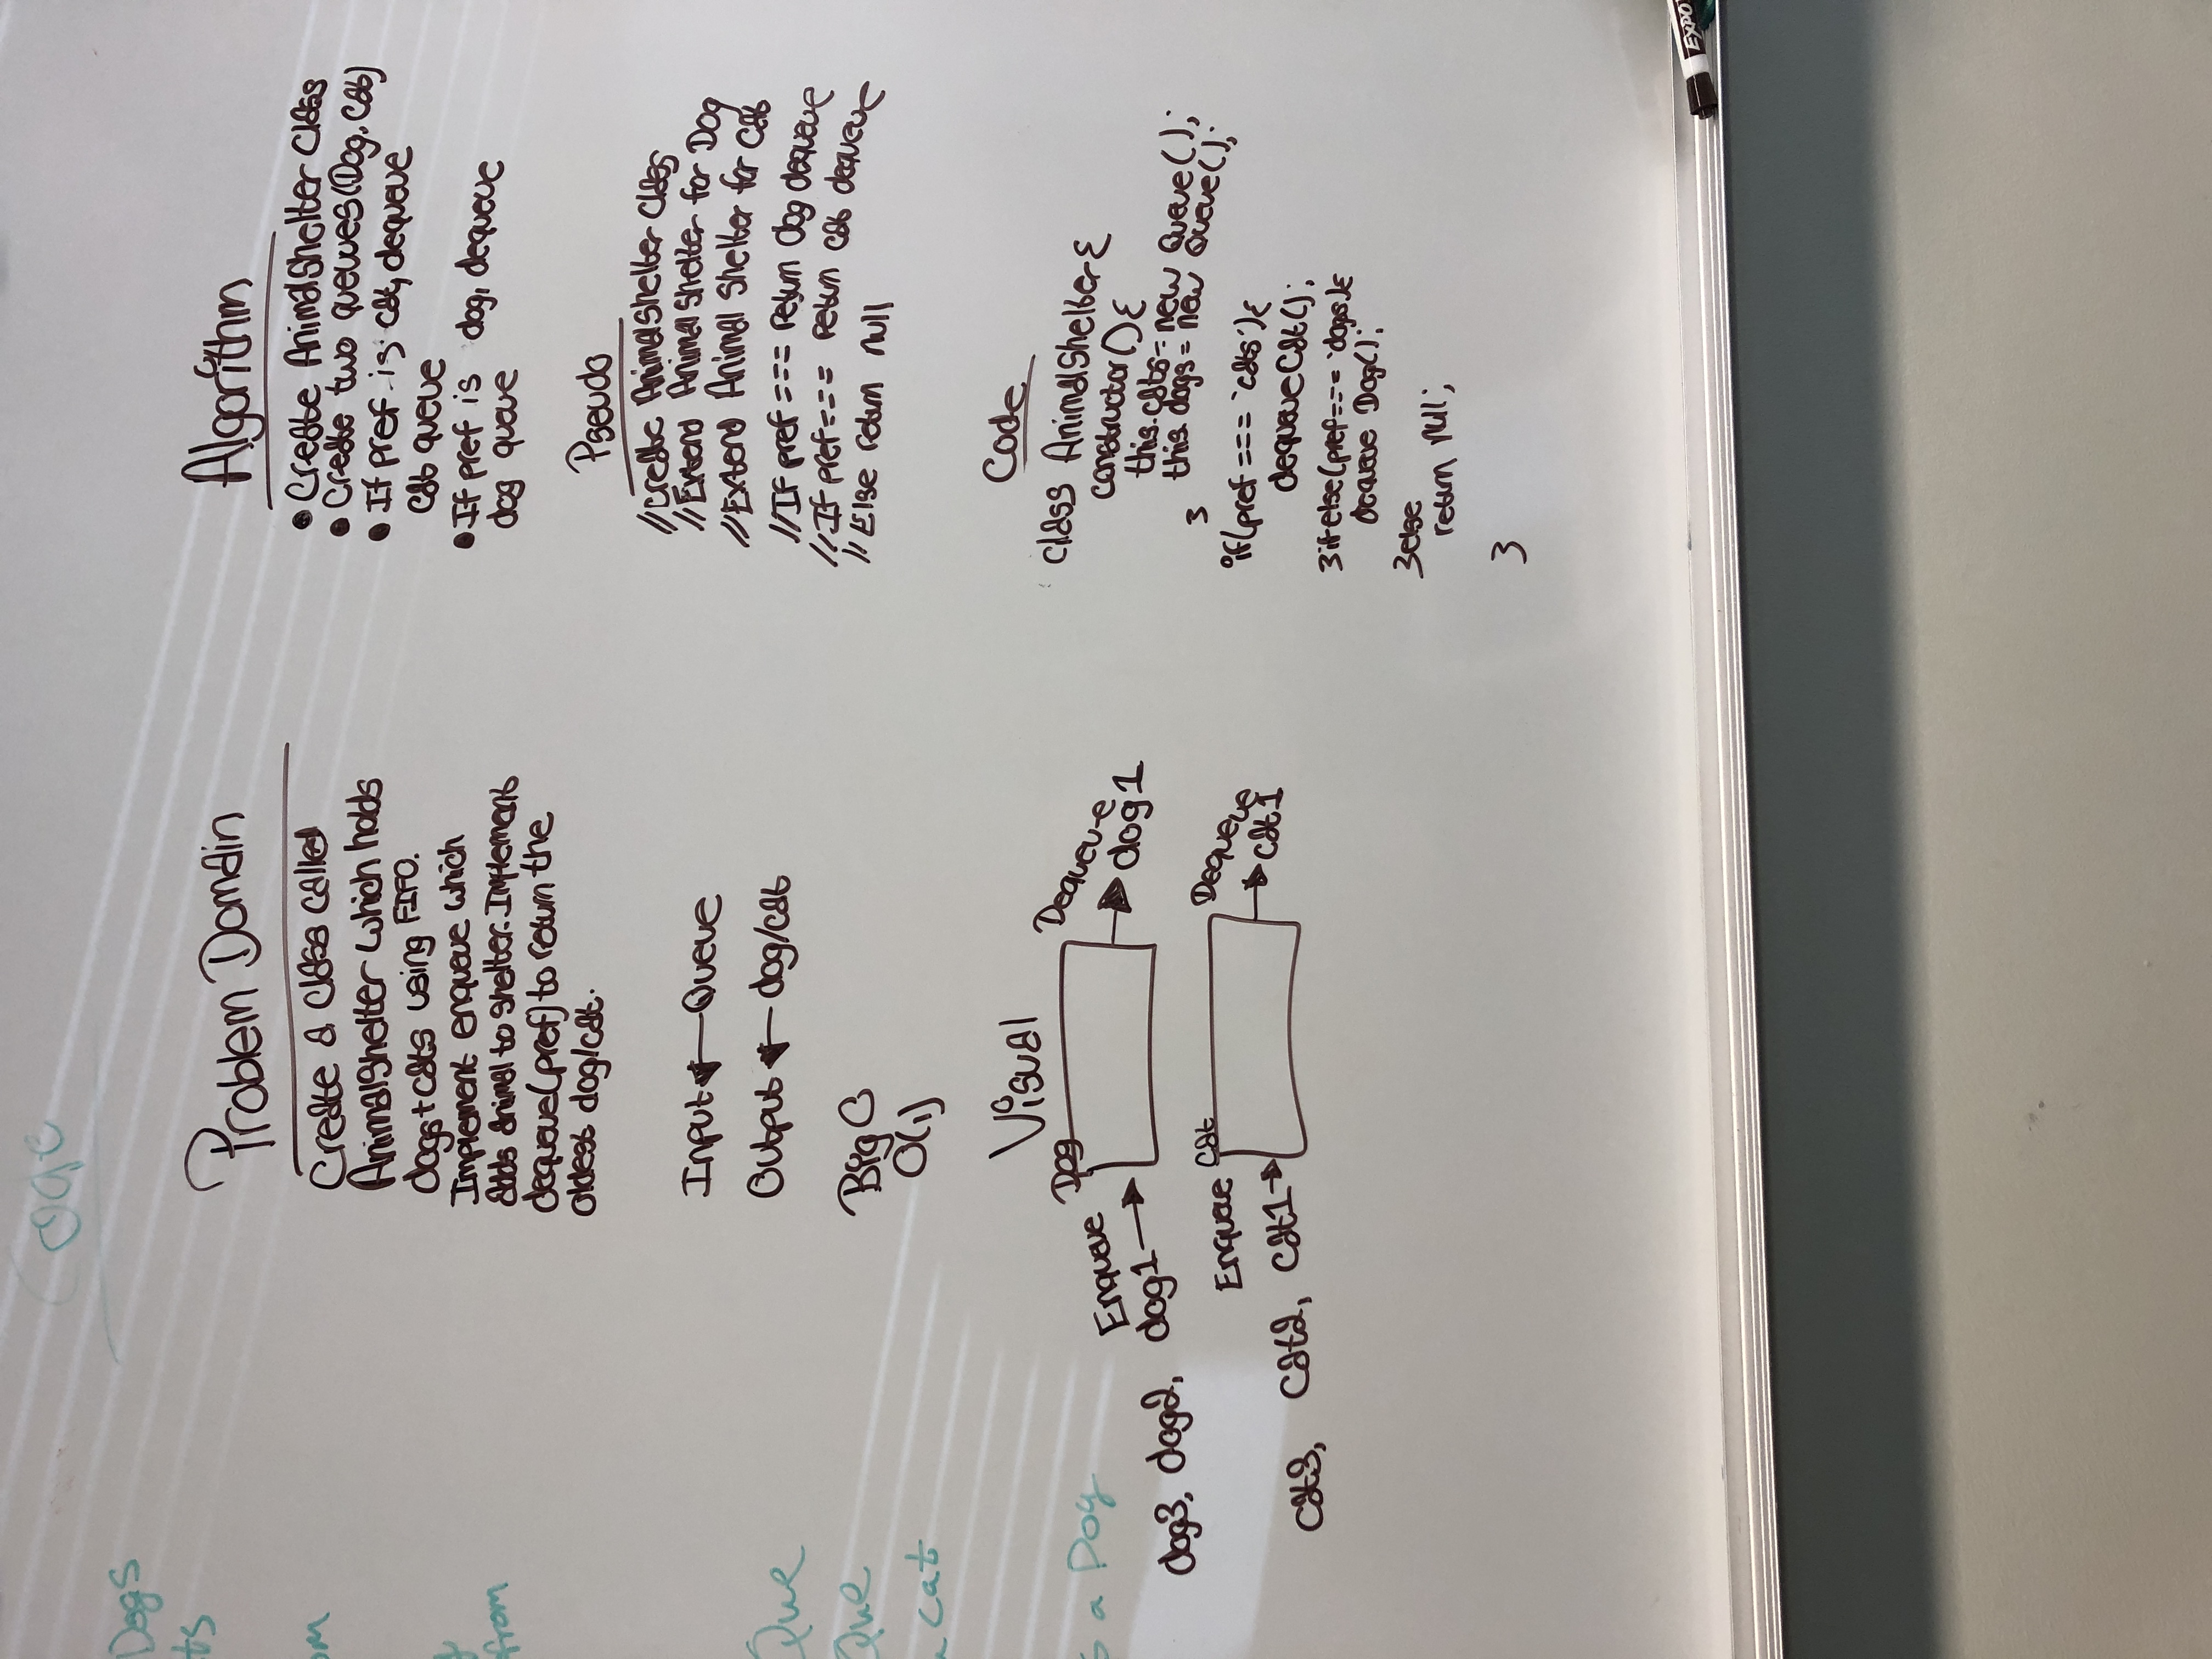 Code
Dogs
ts
om
from
Que
Que
cat
s a Dog
Problem Domain
Create a class called
AnimalShelter which holds
dogs+cats using FIFO.
Implement enqueue which
adds animal to shelter. Implement
dequeue(pref) to return the
oldest dog/cat.
Input ← Queue
Output ← dog/cat
Big O
O(1)
Visual
Dog
Enqueue
Dequeue
dog3, dog2, dog1 →
→ dog1
Cat
Enqueue
Dequeue
cat3, cat2, cat1 →
→ cat1
Algorithm
• Create AnimalShelter Class
• Create two queues(Dog, Cat)
• If pref is cat, dequeue
cat queue
• If pref is dog, dequeue
dog queue
Pseudo
//Create AnimalShelter Class
//Extend Animal Shelter for Dog
//Extend Animal Shelter for Cat
//If pref === return dog dequeue
//If pref === return cat dequeue
// Else return null
Code
class AnimalShelter{
constructor(){
this.cats = new Queue();
this.dogs = new Queue();
}
if(pref === 'cats'){
dequeueCat();
}if else(pref === 'dogs){
dequeue Dog();
}else
return null;
}
EXPO